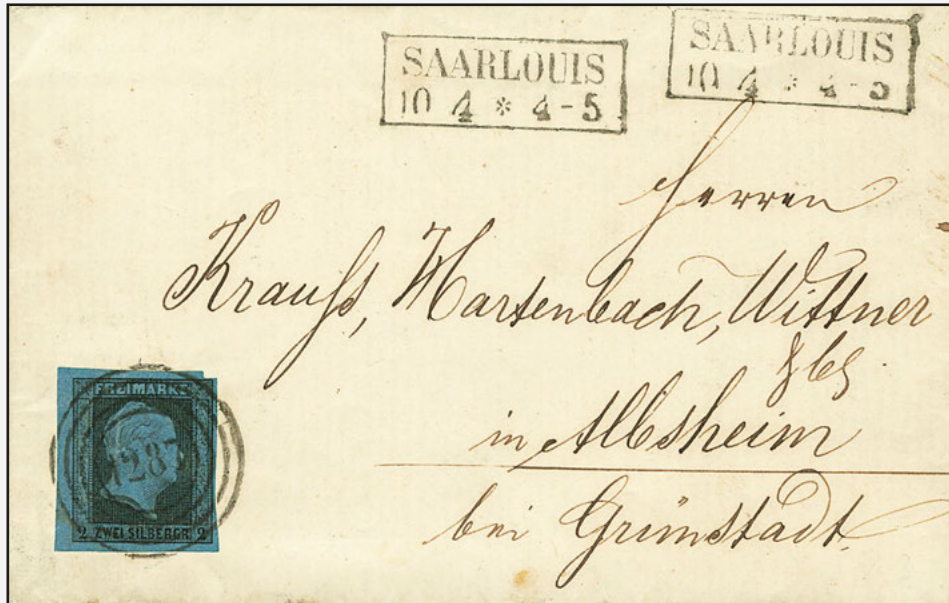 SAARLOUIS
10 4 * 4-5
SAARLOUIS
10 4 * 4-5
Herren
Krauss, Hartenbach, Wittner
in Albsheim
bei Grünstadt.
FREIMARKE
1287
2 ZWEI SILBERGR. 2